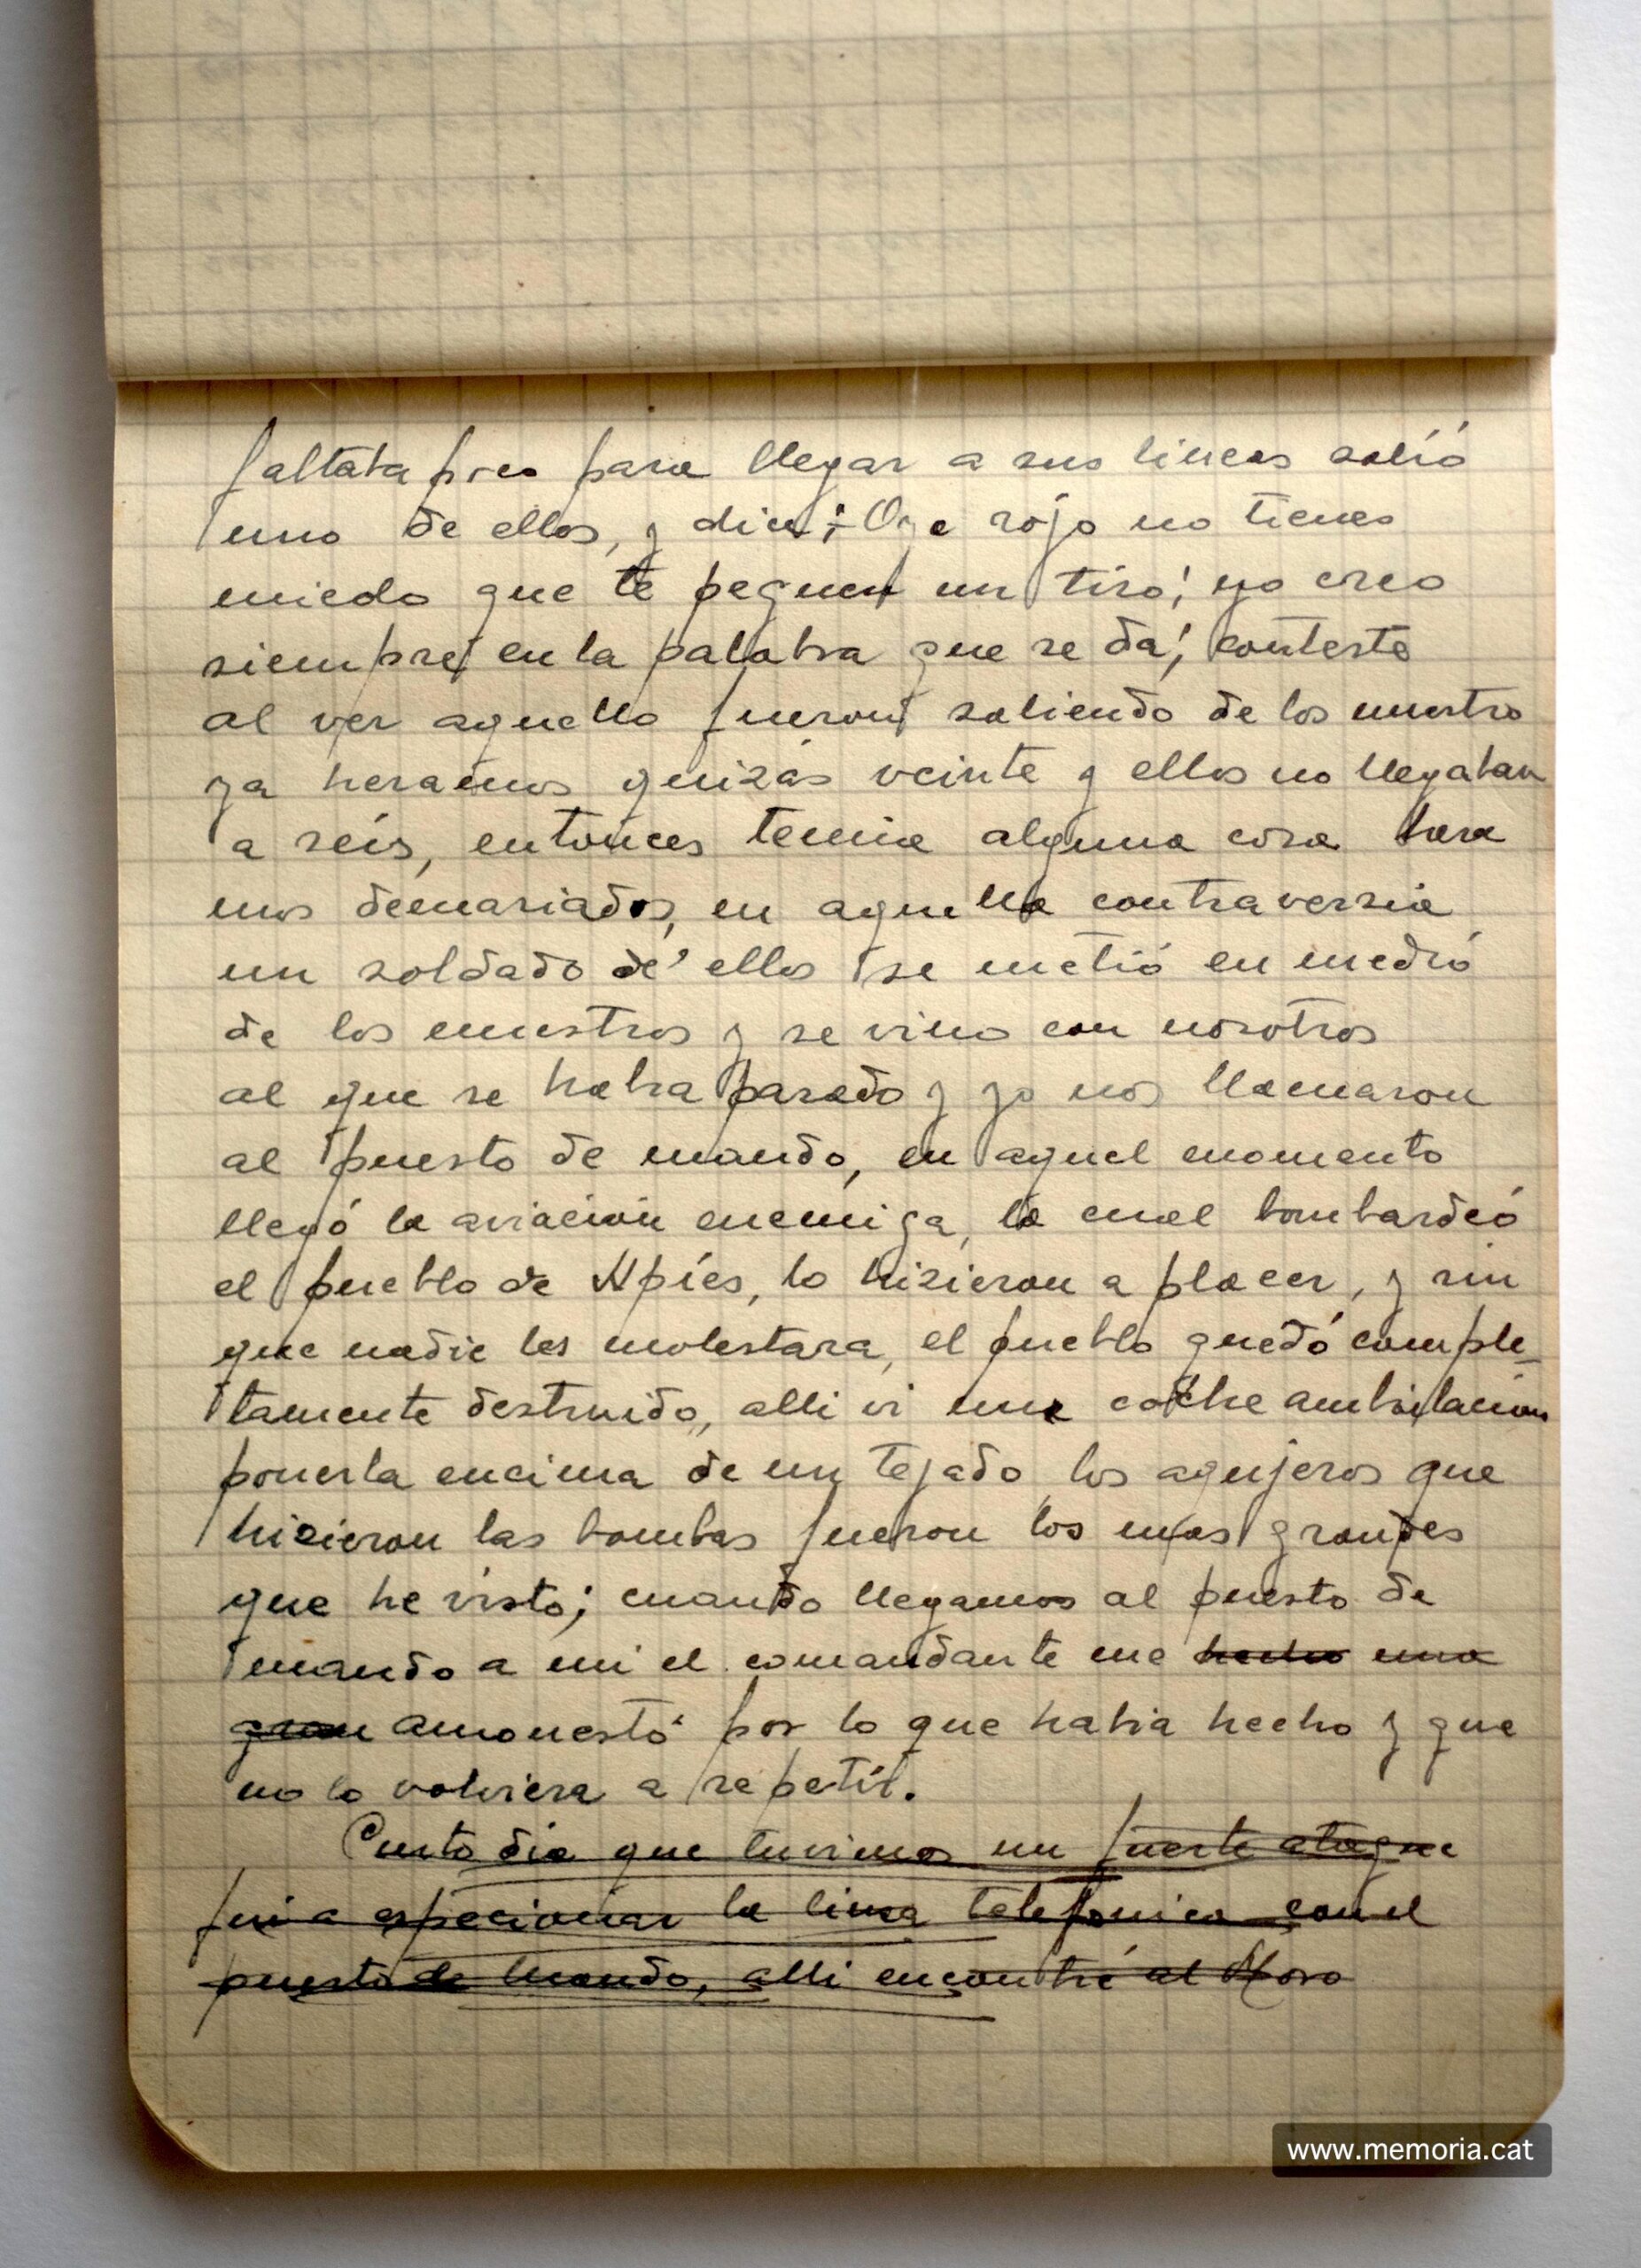 faltaba poco para llegar a sus lineas salió
uno de ellos, y dice; Oye rojo no tienes
miedo que te peguen un tiro; yo creo
siempre en la palabra que se da; conteste
al ver aquello fueron saliendo de los nuestro
ya heramos quizás veinte y ellos no llegaban
a séis, entonces temia alguna cosa hera
mos demasiados, en aquella contraversia
un soldado de ellos se metió en medió
de los nuestros y se vino con nosotros
al que se habia pasado y yo nos llamaron
al puesto de mando, en aquel momento
llegó la aviación enemiga, la cual bombardeó
el pueblo de Apíes, lo hizieron a placer, y sin
que nadie les molestara, el pueblo quedó comple-
tamente destruido, alli vi un coche ambulancia
ponerla encima de un tejado los agujeros que
hizieron las bombas fueron los mas grandes
que he visto; cuando llegamos al puesto de
mando a mi el comandante me hecho una
gran amonestó por lo que habia hecho y que
no lo volviera a repetir.
Cierto dia que tuvimos un fuerte ataque
fui a espeecionar la linea telefonica con el
puesto de mando, alli encontré al Moro
www.memoria.cat